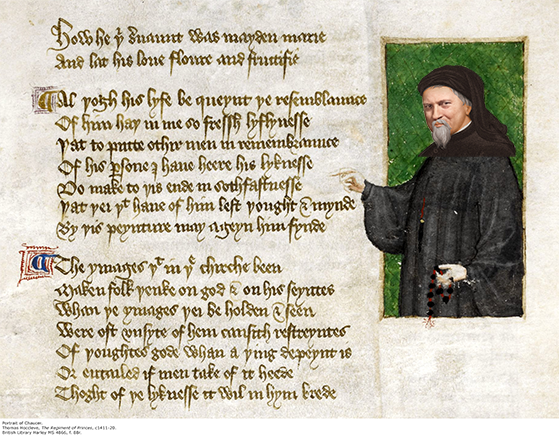 How he yͬ s̉uaunt was mayden marie
And lat his loue floure and fructifie
Al yogh his lyfe be queynt ye resemblaunce
Of him hay in me so fressh lyflynesse
Yat to putte othir men in remembraunce
Of his ꝑsone I haue heere his lyknesse
Do make to yis ende in sothfastnesse
Yat yei yͭ haue of him left yought & mynde
By yis peynture may ageyn him fynde
The ymages yͭ in yͤ chirche been
Maken folk yenke on god & on his seyntes
Whan ye ymages yei be holden & seen
Were oft vnsyte of hem causith restreyntes
Of youghtes gode whan a ying depeynt is
Or entailed if men take of it heede
Thoght of ye lyknesse it wil in hym brede
Portrait of Chaucer.
Thomas Hoccleve, The Regiment of Princes, c1411-20.
British Library Harley MS 4866, f. 88r.